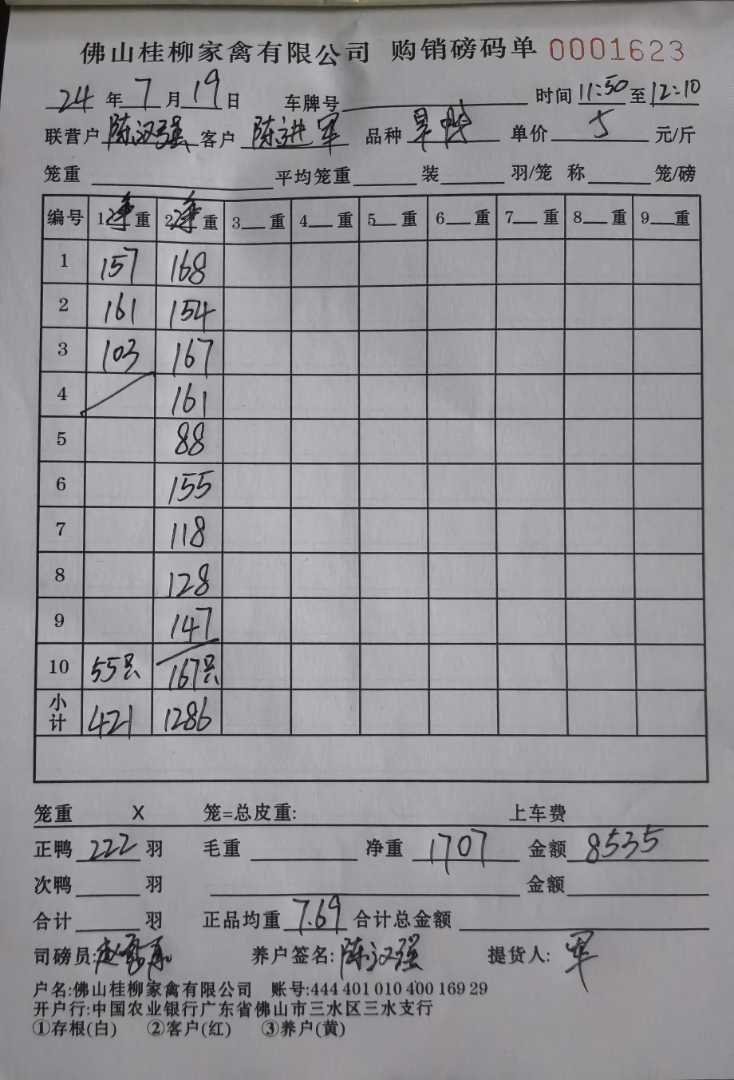 佛山桂柳家禽有限公司 购销磅码单 0001623
24 年 7 月 19 日 车牌号 时间 11:50 至 12:10
联营户 陈汉强 客户 陈进军 品种 单价 5 元/斤
笼重 平均笼重 装 羽/笼 称 笼/磅
编号 1 净 重 2 净 重 3 重 4 重 5 重 6 重 7 重 8 重 9 重
1 157 168
2 161 154
3 103 167
4 161
5 88
6 155
7 118
8 128
9 147
10 55只 167只
小计 421 1286
笼重 X 笼=总皮重: 上车费
正鸭 222 羽 毛重 净重 1707 金额 8535
次鸭 羽 金额
合计 羽 正品均重 7.69 合计总金额
司磅员: 养户签名: 陈汉强 提货人: 军
户名:佛山桂柳家禽有限公司 账号:444 401 010 400 169 29
开户行:中国农业银行广东省佛山市三水区三水支行
①存根(白) ②客户(红) ③养户(黄)